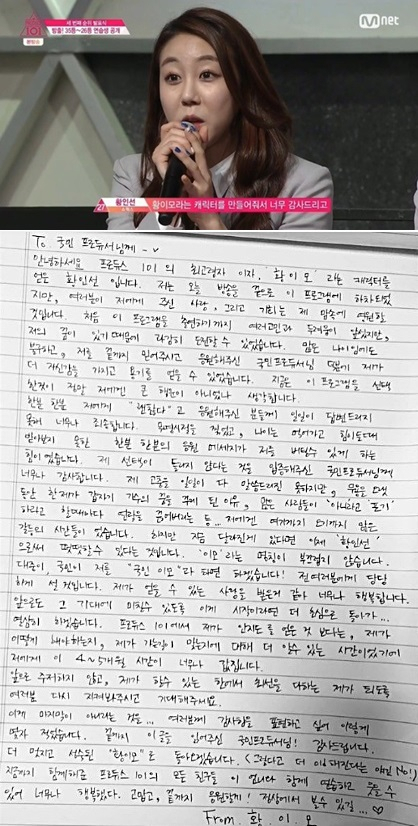 세 번째 순위 발표식
방출! 35등~26등 연습생 공개
PRODUCE
101
Mnet
황인선
27
황이모라는 캐릭터를 만들어줘서 너무 감사드리고
To. 국민 프로듀서님께
안녕하세요 프로듀스 101의 최고령자 이자, '황이모' 라는 캐릭터를
얻은 황인선 입니다. 저는 오늘 방송을 끝으로 이 프로그램에 하차되었
지만, 여러분이 저에게 주신 사랑, 그리고 기회는 제 맘속에 영원할
것입니다. 처음 이 프로그램을 출연하기까지 여러고민과 두려움이 있었지만,
저의 꿈이 있기 때문에 과감히 도전할 수 있었습니다. 많은 나이임에도
불구하고, 저를 끝까지 믿어주시고 응원해주신 국민프로듀서님 덕분에 제가
더 자신감을 가지고 용기를 얻을 수 있었습니다. 지금은 이 프로그램을 선택
한것이 정말 저에게는 큰 행운이 아니었나 생각합니다.
한분 한분 저에게 "팬입니다"고 응원해주신 분들께 일일이 답변드리지
못해 너무나 죄송합니다. 나이는 먹어가고 힘이들때
한분 한분의 응원 메세지가 저를 버틸수 있게 하는
힘이였습니다. 제 선택이 틀리지 않다는 것을 입증해주신 국민프로듀서님께
너무나 감사합니다. 제 고충을 일일이 다 말씀드리진 못하지만,
동안 한 제가 갑자기 가수의 꿈을 꾸게 된 이유, 많은 사람들이 '아니라고 포기'
하라고 할때마다 저에게 여기까지 오기까지 많은
갈등의 시간들이 있었습니다. 하지만 지금 달라진게 있다면 이제 '황인선'
으로써 떳떳할수 있다는 것입니다. '이모'라는 명칭이 부끄럽지 않습니다.
대중이, 국민이 저를 "국민 이모"라 하면 하겠습니다! 전 여러분께 당당
하게 설 것입니다. 제가 얻을 수 있는 사랑을 받은거 같아 너무나 행복합니다.
앞으로도 그 기대에 미칠수 있도록 이게 시작이라면 더 초심으로 돌아가...
열심히 하겠습니다. 프로듀스 101에서 제가 인지도를 얻은 것 보다는, 제가
어떻게 해야하는지, 제가 가는길이 맞는지에 대해 더 알수 있는 시간이었기에
저에게 이 4~5개월 시간이 너무나 값집니다.
앞으로 주저하지 않고, 제가 할수 있는 한에서 최선을 다하는 제가 되도록
여러분 다시 지켜봐주시고 기대해주세요.
이제 마지막이 아니라는 것을... 여러분께 감사함을 표현하고 싶어 이렇게
몇자 적었습니다. 끝까지 이글을 읽어주신 국민프로듀서님! 감사드립니다.
더 멋지고 성숙된 "황이모"로 돌아오겠습니다. (그렇다고 더 이모해진다는 얘긴 No!)
지금까지 함께해준 프로듀스 101의 모든 친구들 이 언니가 함께 연습하고 꿈꿀 수
있어 너무나 행복했다. 고맙고, 끝까지 응원할게! 정상에서 보자 있길 ...♡
From. 황.이.모